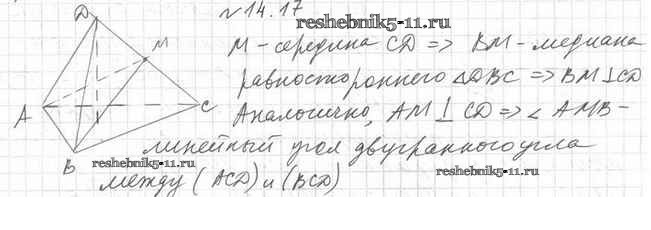 № 14.17
reshebnik5-11.ru
D
M
A
C
B
M - середина CD => BM - медиана
равностороннего △DBC => BM ⊥ CD
Аналогично, AM ⊥ CD => ∠ AMB -
линейный угол двугранного угла
reshebnik5-11.ru
reshebnik5-11.ru
между (ACD) и (BCD)